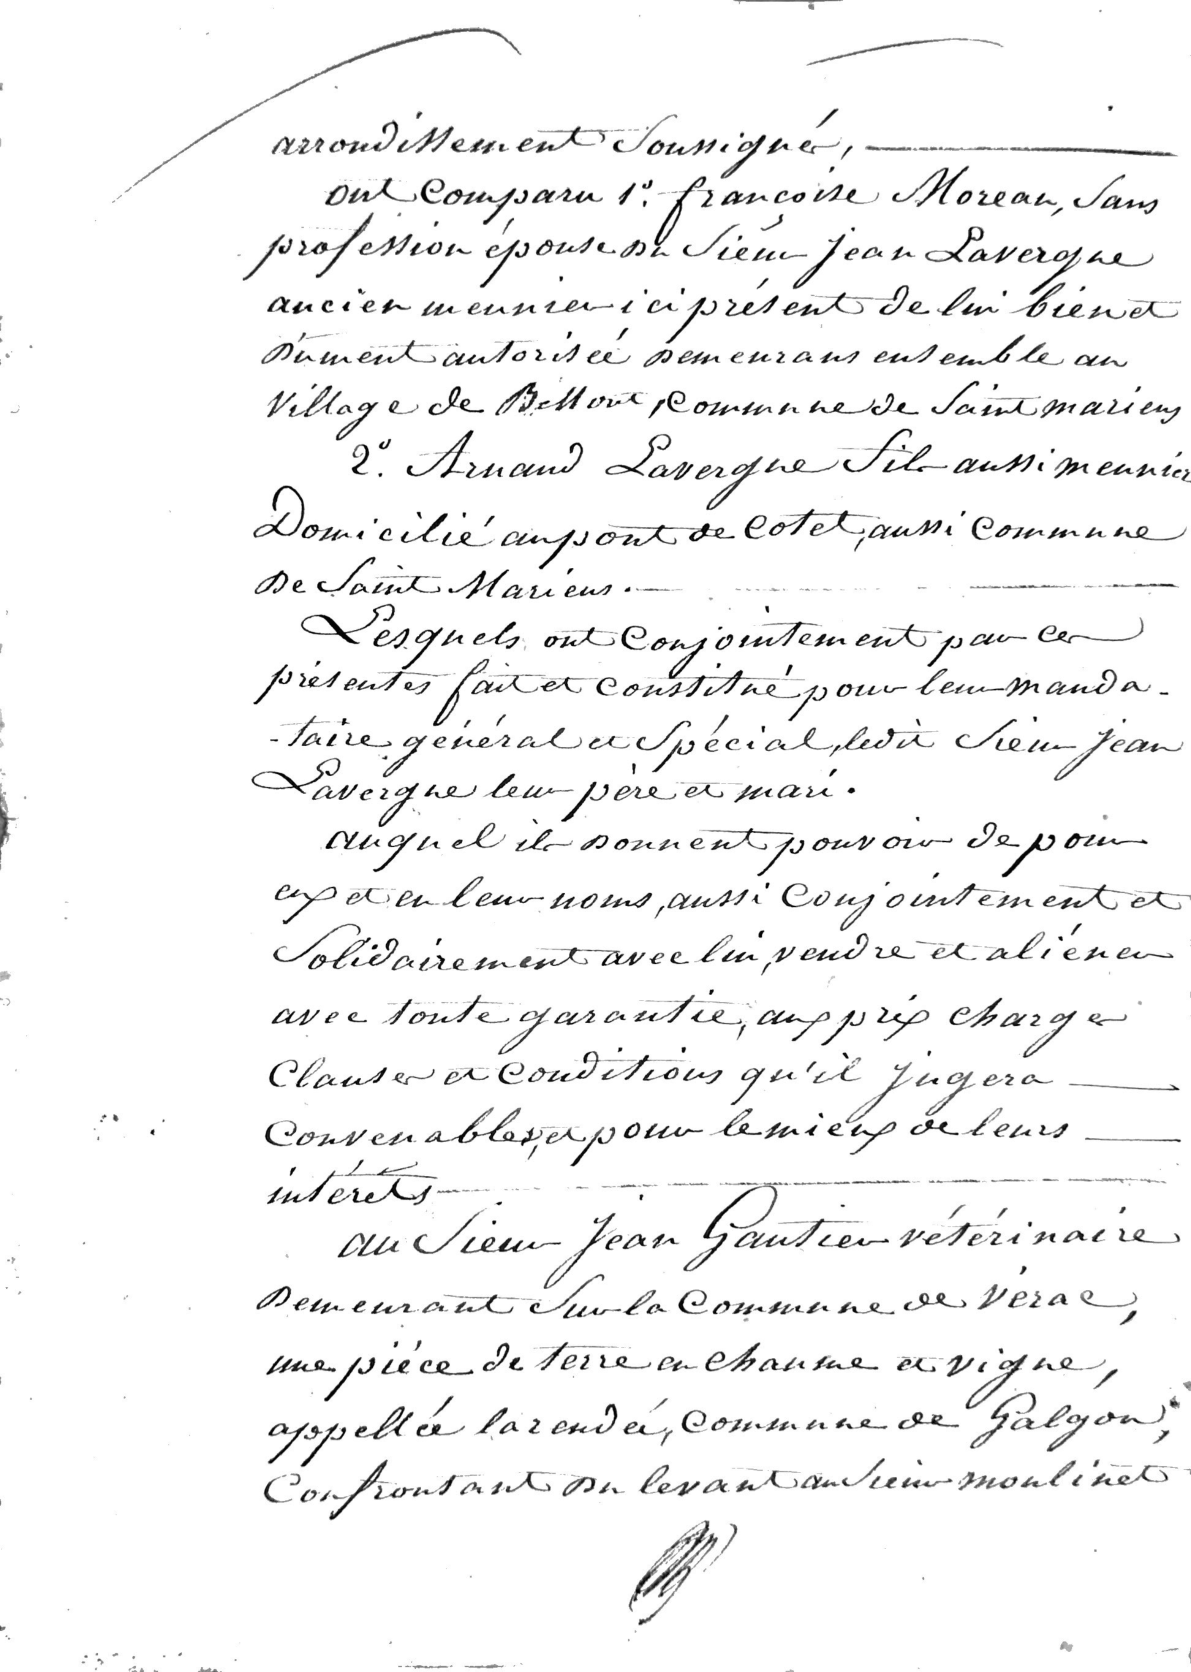 arrondissement Soussignés,
ont Comparu 1º. françoise Moreau, Sans
profession épouse du Sieur Jean Lavergne
ancien meunier ici présent de lui bien et
dument autorisée demeurans ensemble au
Village de Bellout, Commune de Saint mariens
2º. Arnaud Lavergne fils aussi meunier
Domicilié au pont de Cotet, aussi Commune
de Saint Mariens.
Lesquels ont Conjointement par ces
présentes fait et Constitué pour leur manda-
-taire général et Spécial, ledit Sieur Jean
Lavergne leur père et mari.
auquel ils donnent pouvoir de pour
eux et en leur noms, aussi Conjointement et
Solidairement avec lui, vendre et aliéner
avec toute garantie, aux prix charges
Clauses et Conditions qu'il jugera
Convenables, et pour le mieux de leurs
intérêts
au Sieur Jean Gautier vétérinaire
demeurant Sur la Commune de Vérac,
une pièce de terre en chaume et vigne,
appellée larendée, Commune de Galgon,
Confrontant du levant au Sieur moulinet